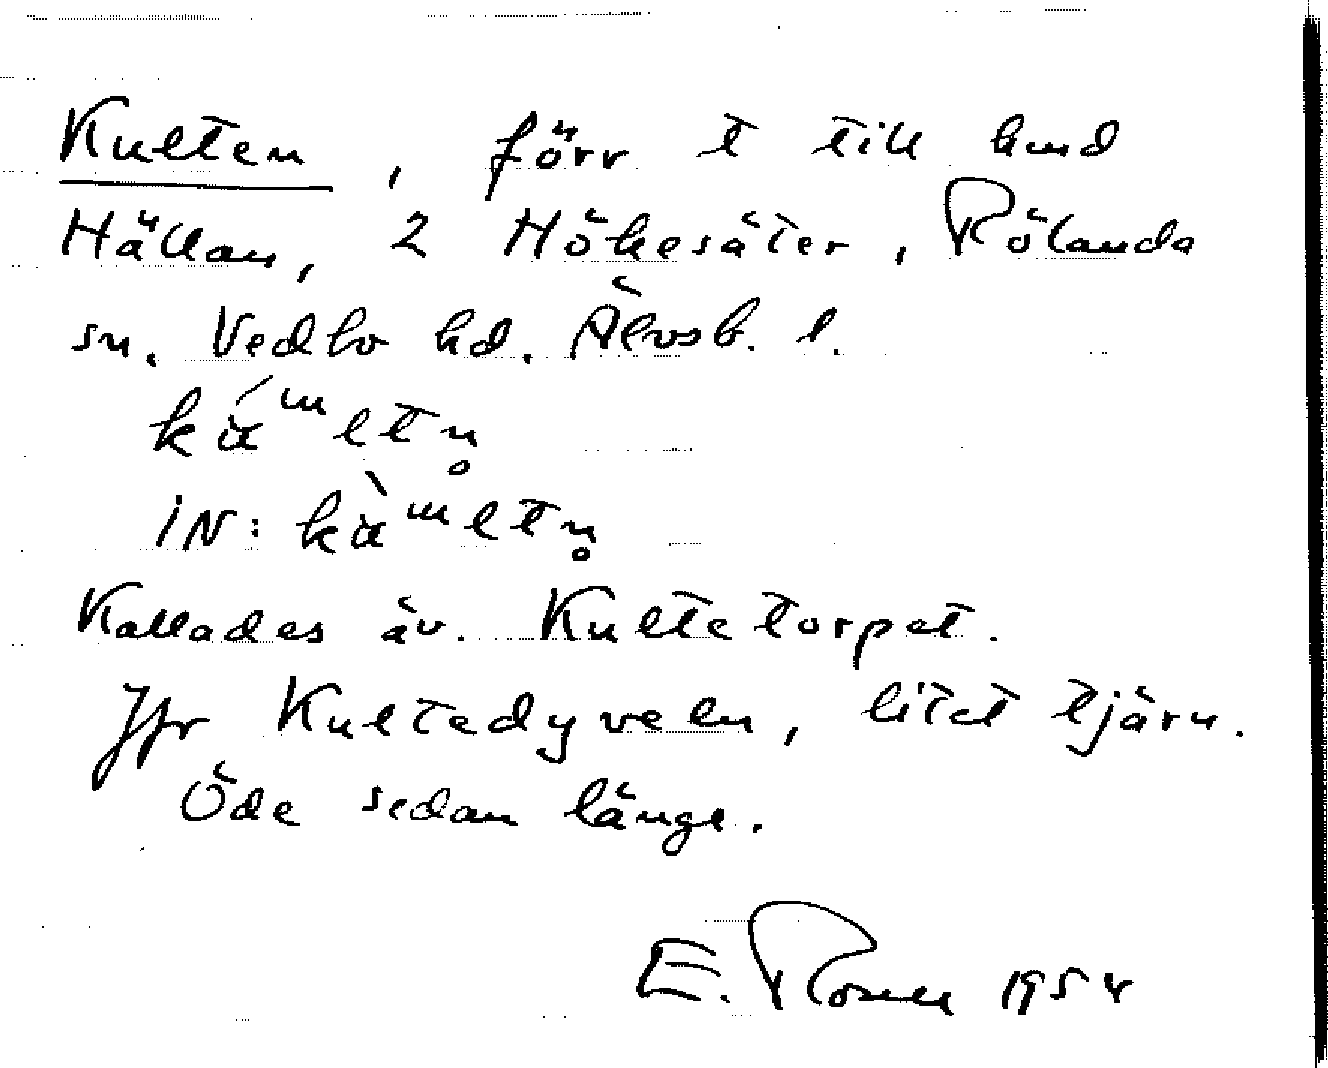 Kulten, förr t till hmd
Hällan, 2 Hökesäter, Rölanda
sn. Vedbo hd. Älvsb. l.
iN:
Kallades äv. Kultetorpet.
Jfr Kultedyveln, litet tjärn.
Öde sedan länge.
E. Rosell 1954